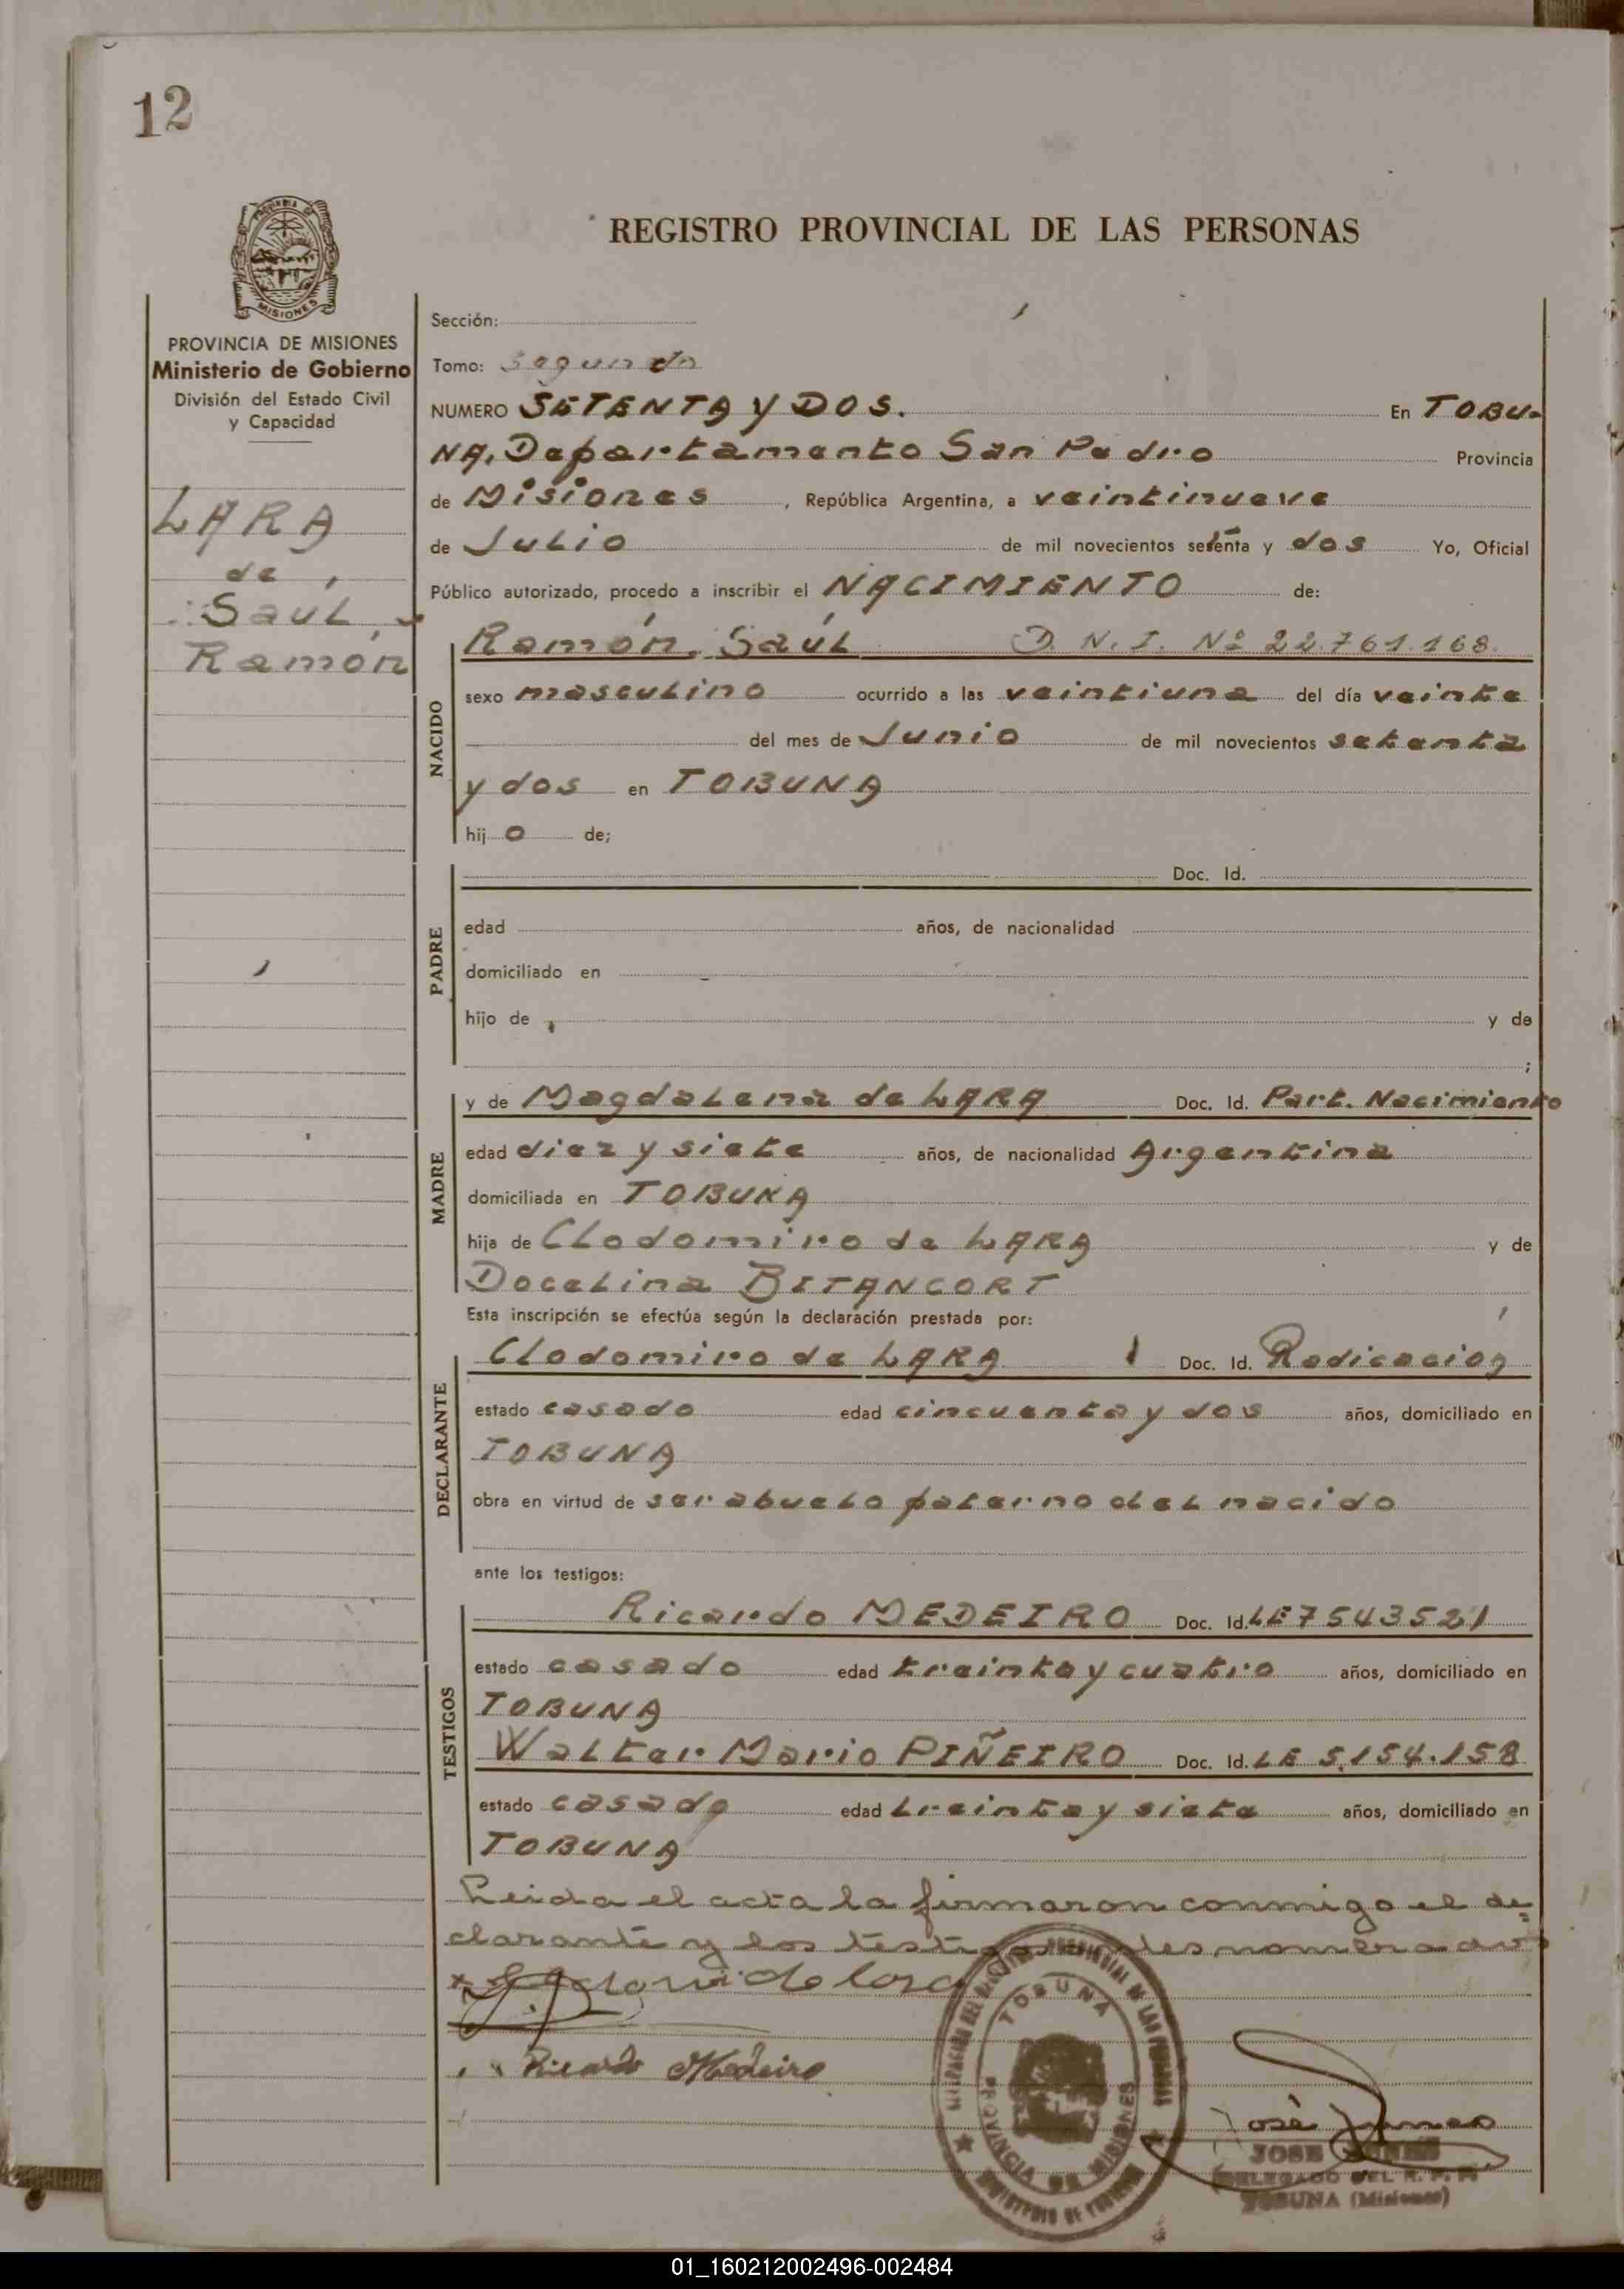 12
REGISTRO PROVINCIAL DE LAS PERSONAS
MISIONES
PROVINCIA DE MISIONES
Ministerio de Gobierno
División del Estado Civil
y Capacidad
LARA
de
Saúl
Ramón
Sección:
Tomo: Segundo
NUMERO SETENTA y DOS. En TOBU-
NA, Departamento San Pedro Provincia
de Misiones, República Argentina, a veintinueve
de Julio de mil novecientos setenta y dos Yo, Oficial
Público autorizado, procedo a inscribir el NACIMIENTO de:
NACIDO
Ramón, Saúl D. N. I. Nº 22.761.168.
sexo masculino ocurrido a las veintiuna del día veinte
del mes de Junio de mil novecientos setenta
y dos en TOBUNA
hij o de;
PADRE
Doc. Id.
edad años, de nacionalidad
domiciliado en
hijo de y de
;
MADRE
y de Magdalena de LARA Doc. Id. Part. Nacimiento
edad diez y siete años, de nacionalidad Argentina
domiciliada en TOBUNA
hija de Clodomiro de LARA y de
Docelina BITANCORT
Esta inscripción se efectúa según la declaración prestada por:
DECLARANTE
Clodomiro de LARA Doc. Id. Radicación
estado casado edad cincuenta y dos años, domiciliado en
TOBUNA
obra en virtud de ser abuelo paterno del nacido
ante los testigos:
TESTIGOS
Ricardo MEDEIRO Doc. Id. LE 7543521
estado casado edad treinta y cuatro años, domiciliado en
TOBUNA
Walter Mario PIÑEIRO Doc. Id. LE 5.154.158
estado casado edad treinta y siete años, domiciliado en
TOBUNA
Leida el acta la firmaron conmigo el de=
clarante y los testigos
de lara
Ricardo Medeiro
TOBUNA
PROVINCIA DE MISIONES
José
JOSE
DELEGADO DEL R. P. P.
TOBUNA (Misiones)
01_160212002496-002484